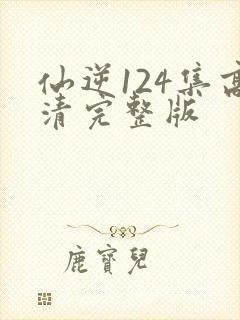 仙逆124集高
清完整版
鹿寶兒